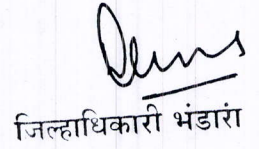 जिल्हाधिकारी भंडारा